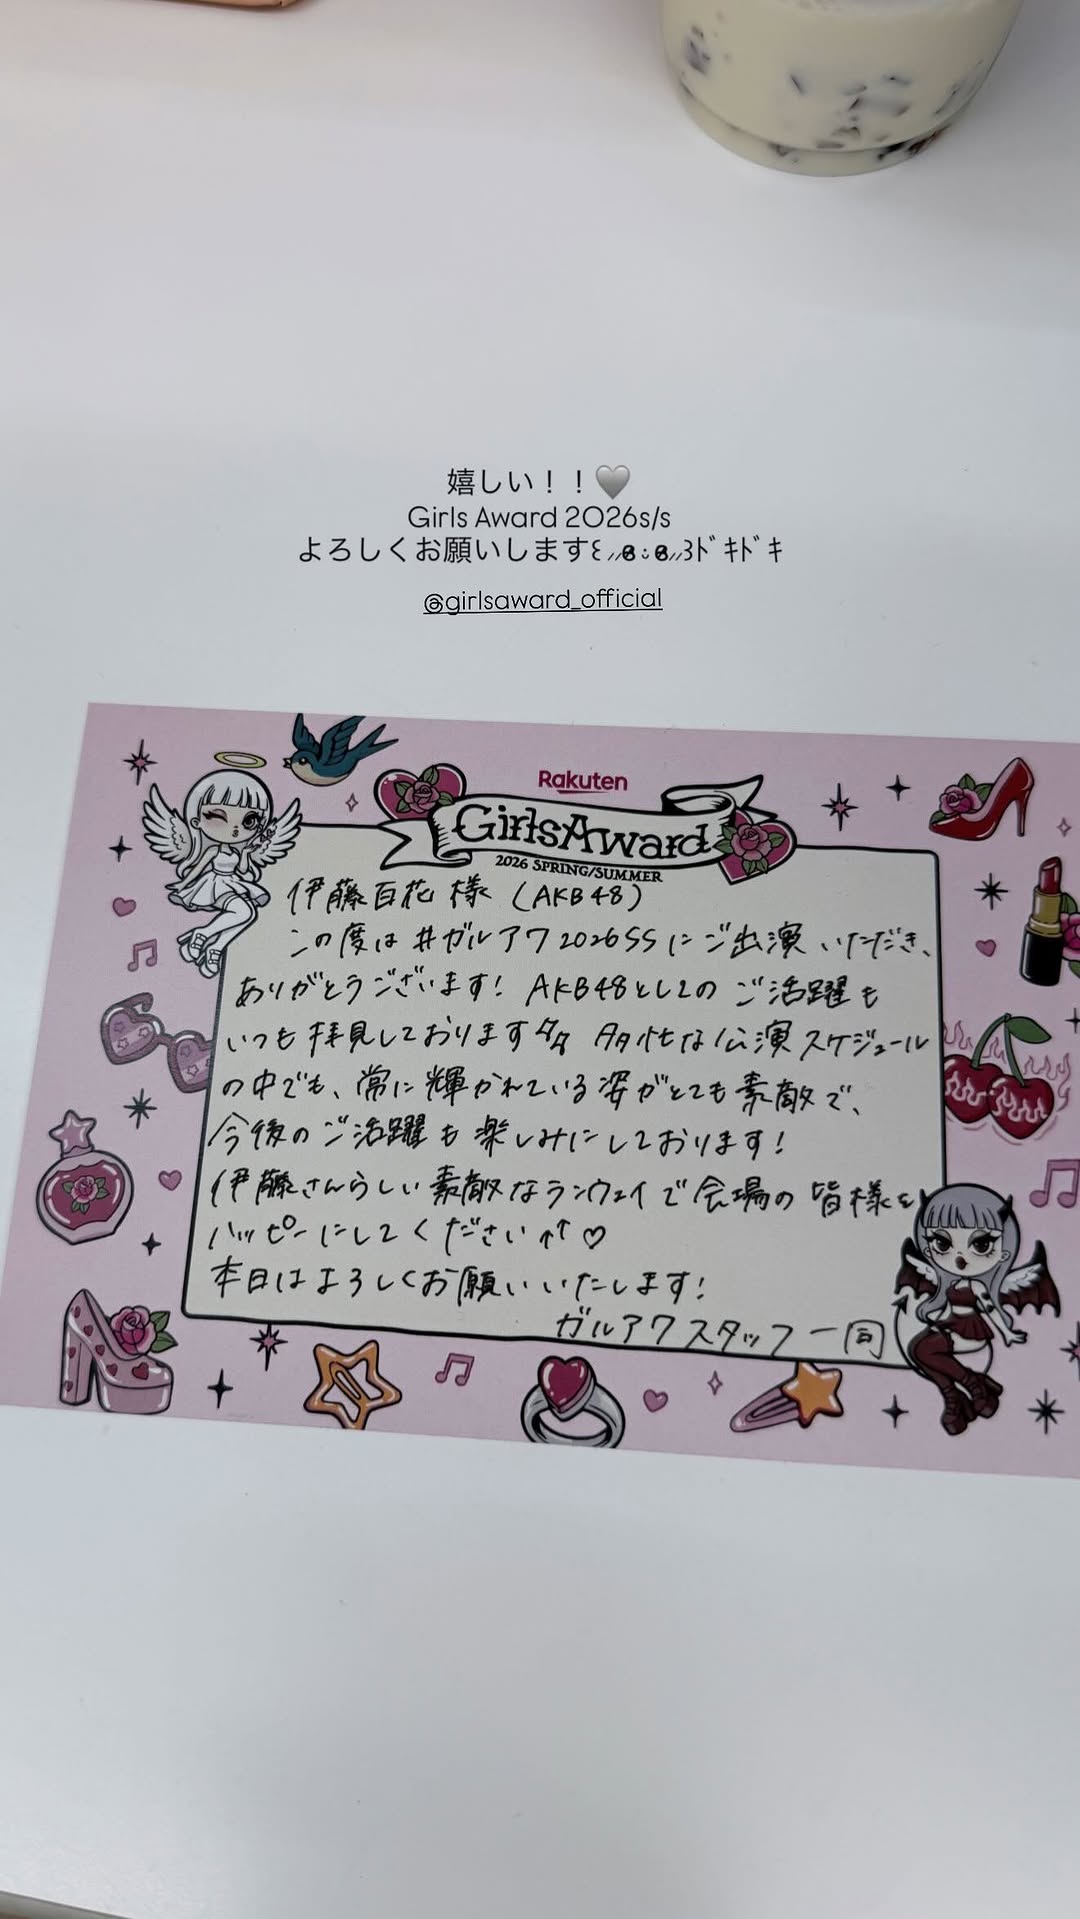 嬉しい！！🩶
Girls Award 2026s/s
よろしくお願いします꒰⸝⸝ɞ̴̶̷ ·̮ ɞ̴̶̷⸝⸝꒱ﾄﾞｷﾄﾞｷ
@girlsaward_official
Rakuten
GirlsAward
2026 SPRING/SUMMER
伊藤百花 様 (AKB48)
この度は #ガルアワ2026SS にご出演いただき、
ありがとうございます! AKB48としてのご活躍も
いつも拝見しております 多忙な公演スケジュール
の中でも、常に輝かれている姿がとても素敵で、
今後のご活躍も楽しみにしております!
伊藤さんらしい素敵なランウェイで会場の皆様を
ハッピーにしてください↑↑♡
本日はよろしくお願いいたします!
ガルアワスタッフ一同